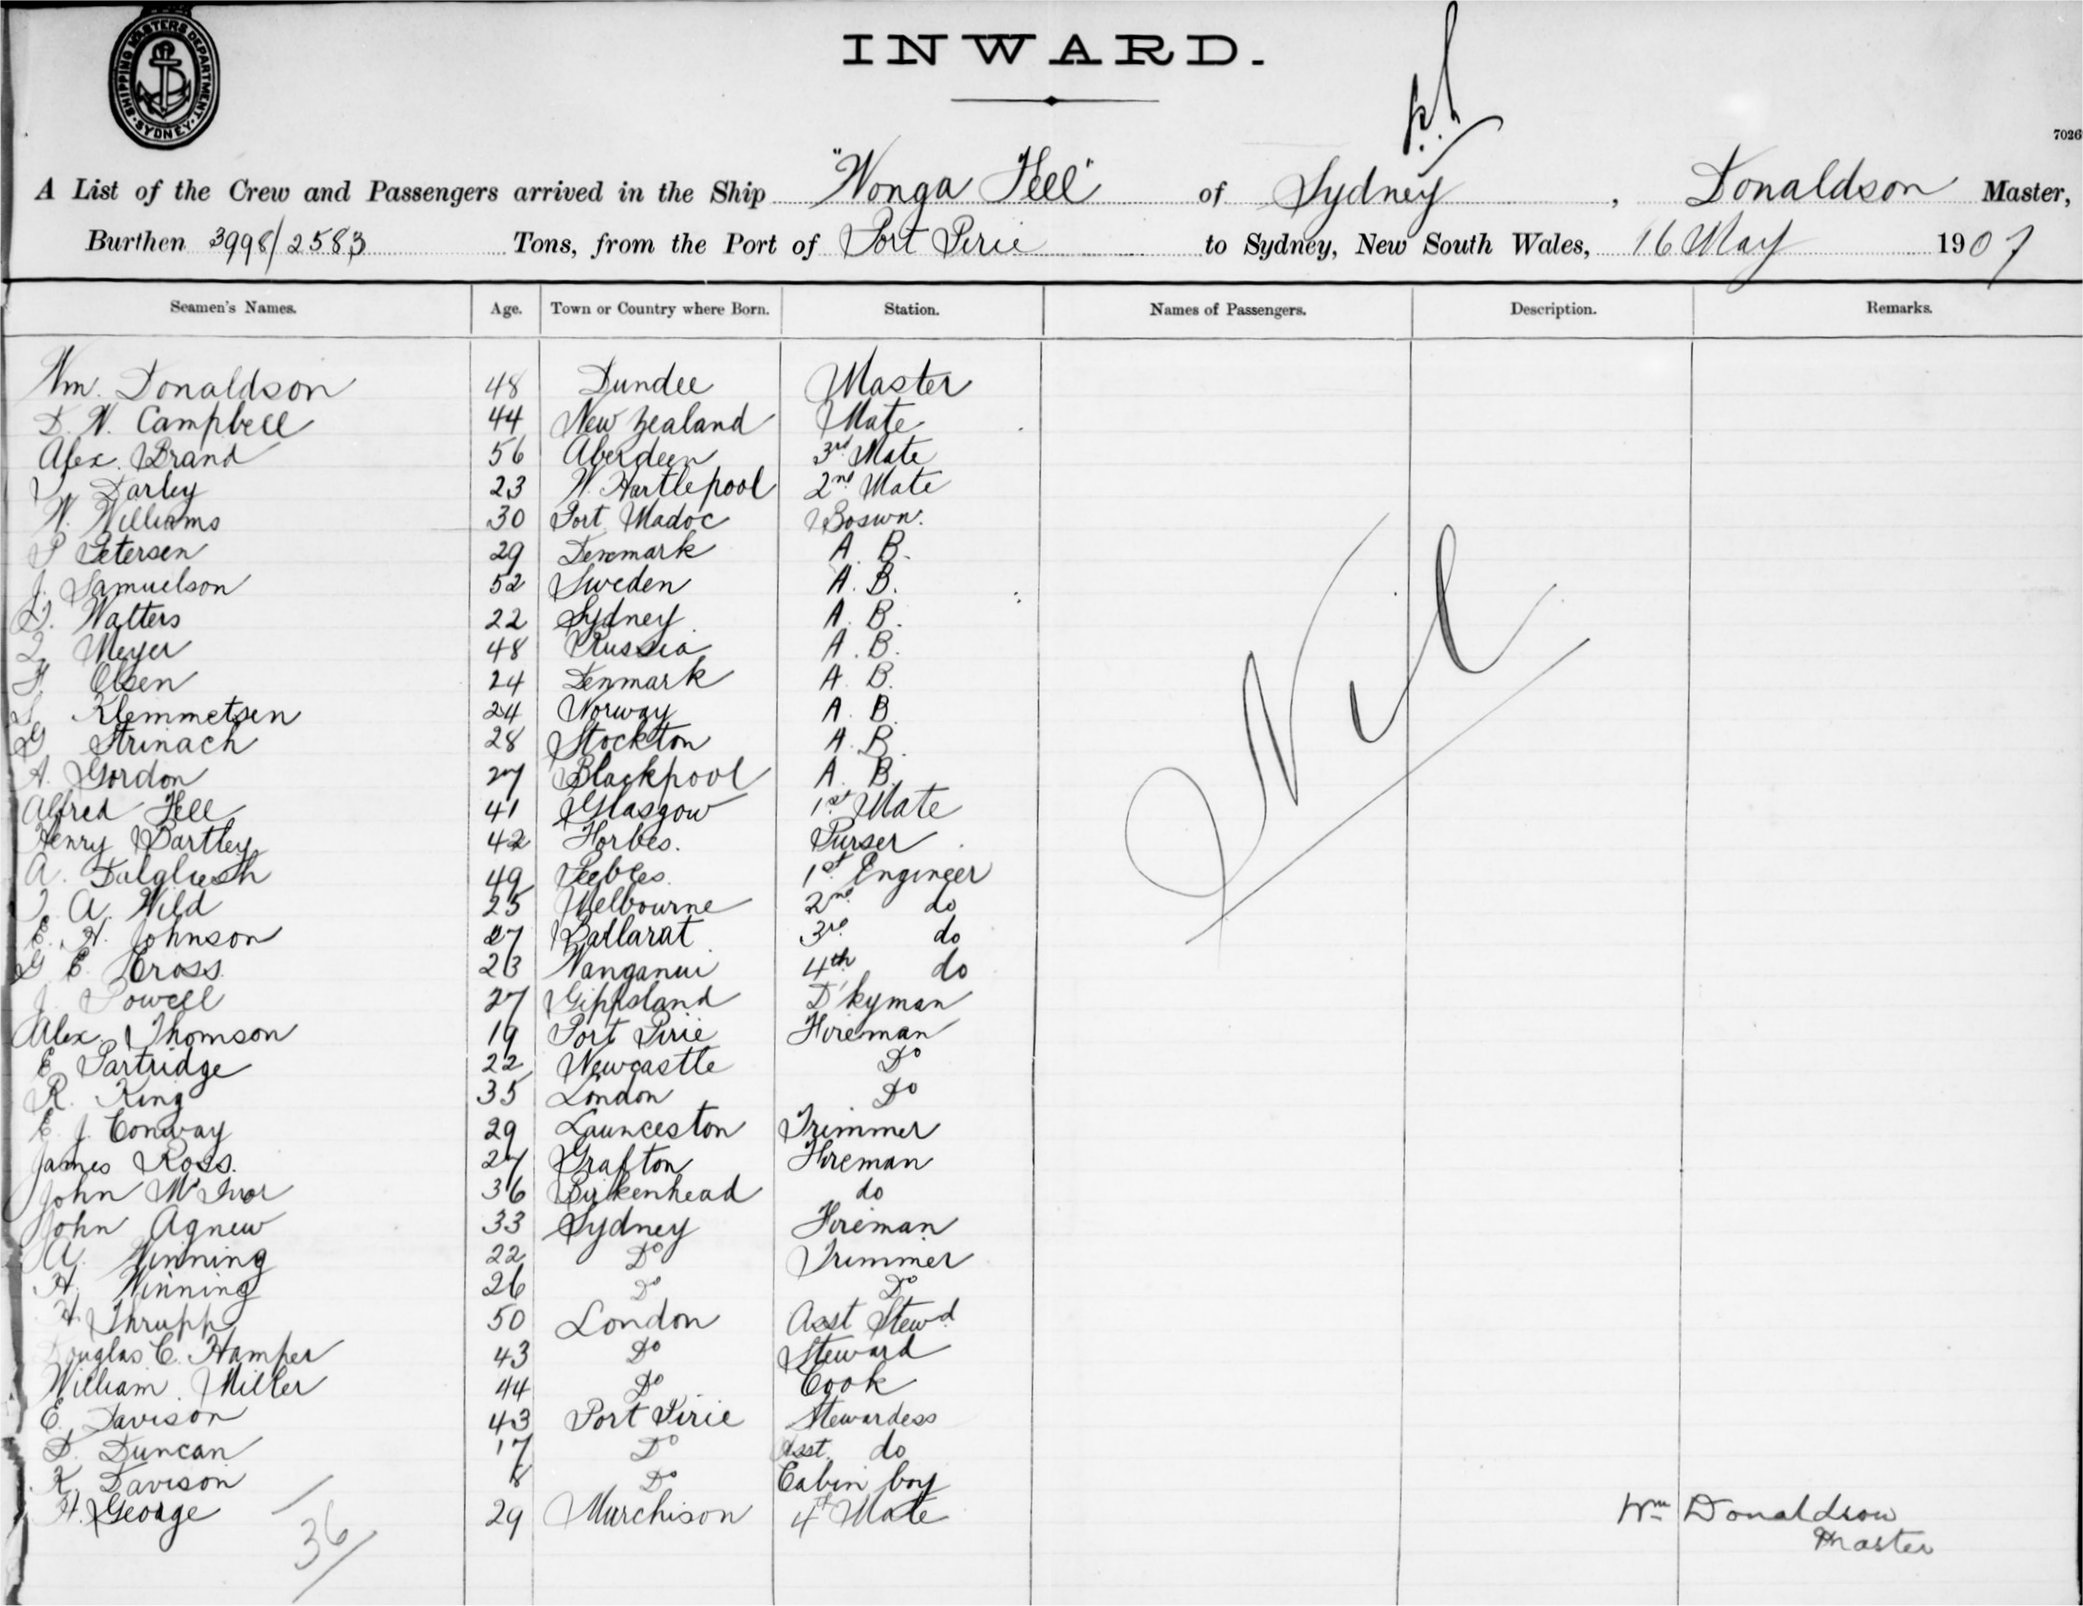 SHIPPING MASTERS DEPARTMENT. SYDNEY.
INWARD.
7026
A List of the Crew and Passengers arrived in the Ship "Wonga Fell" of Sydney, Donaldson Master,
Burthen 3998/2583 Tons, from the Port of Port Pirie to Sydney, New South Wales, 16 May 1907
Seamen's Names. Age. Town or Country where Born. Station. Names of Passengers. Description. Remarks.
Wm. Donaldson 48 Dundee Master
D. W. Campbell 44 New Zealand Mate
Alex. Brand 56 Aberdeen 3rd Mate
Darley 23 W. Hartlepool 2nd Mate
W. Williams 30 Port Madoc Boswn.
P Petersen 29 Denmark A. B.
J. Samuelson 52 Sweden A. B.
D. Walters 22 Sydney A. B.
Meyer 48 Russia A. B.
Olsen 24 Denmark A. B.
Klemmetsen 24 Norway A. B.
G Strinach 28 Stockton A. B.
A. Gordon 27 Blackpool A. B.
Alfred Fell 41 Glasgow 1st Mate
Henry Bartley 42 Forbes. Purser
A. Dalgliesh 49 Peebles. 1st Engineer
J. A. Wild 25 Melbourne 2nd do
E. H. Johnson 27 Ballarat 3rd do
G E Cross. 23 Wanganui 4th do
J. Powell 27 Gippsland D'kyman
Alex. Thomson 19 Port Pirie Fireman
E Partridge 22 Newcastle Do
R. King 35 London Do
E. J. Conway 29 Launceston Trimmer
James Ross. 27 Grafton Fireman
John McIvor 36 Birkenhead do
John Agnew 33 Sydney Fireman
A. Winning 22 Do Trimmer
H. Winning 26 Do Do
H. Thrupp 50 London Asst Stewd
Douglas C. Hamper 43 Do Steward
William Miller 44 Do Cook
E. Davison 43 Port Pirie Stewardess
D. Duncan 17 Do Asst. do
K. Davison 8 Do Cabin boy
H. George 29 Murchison 4th Mate
36
Nil
Wm Donaldson
Master